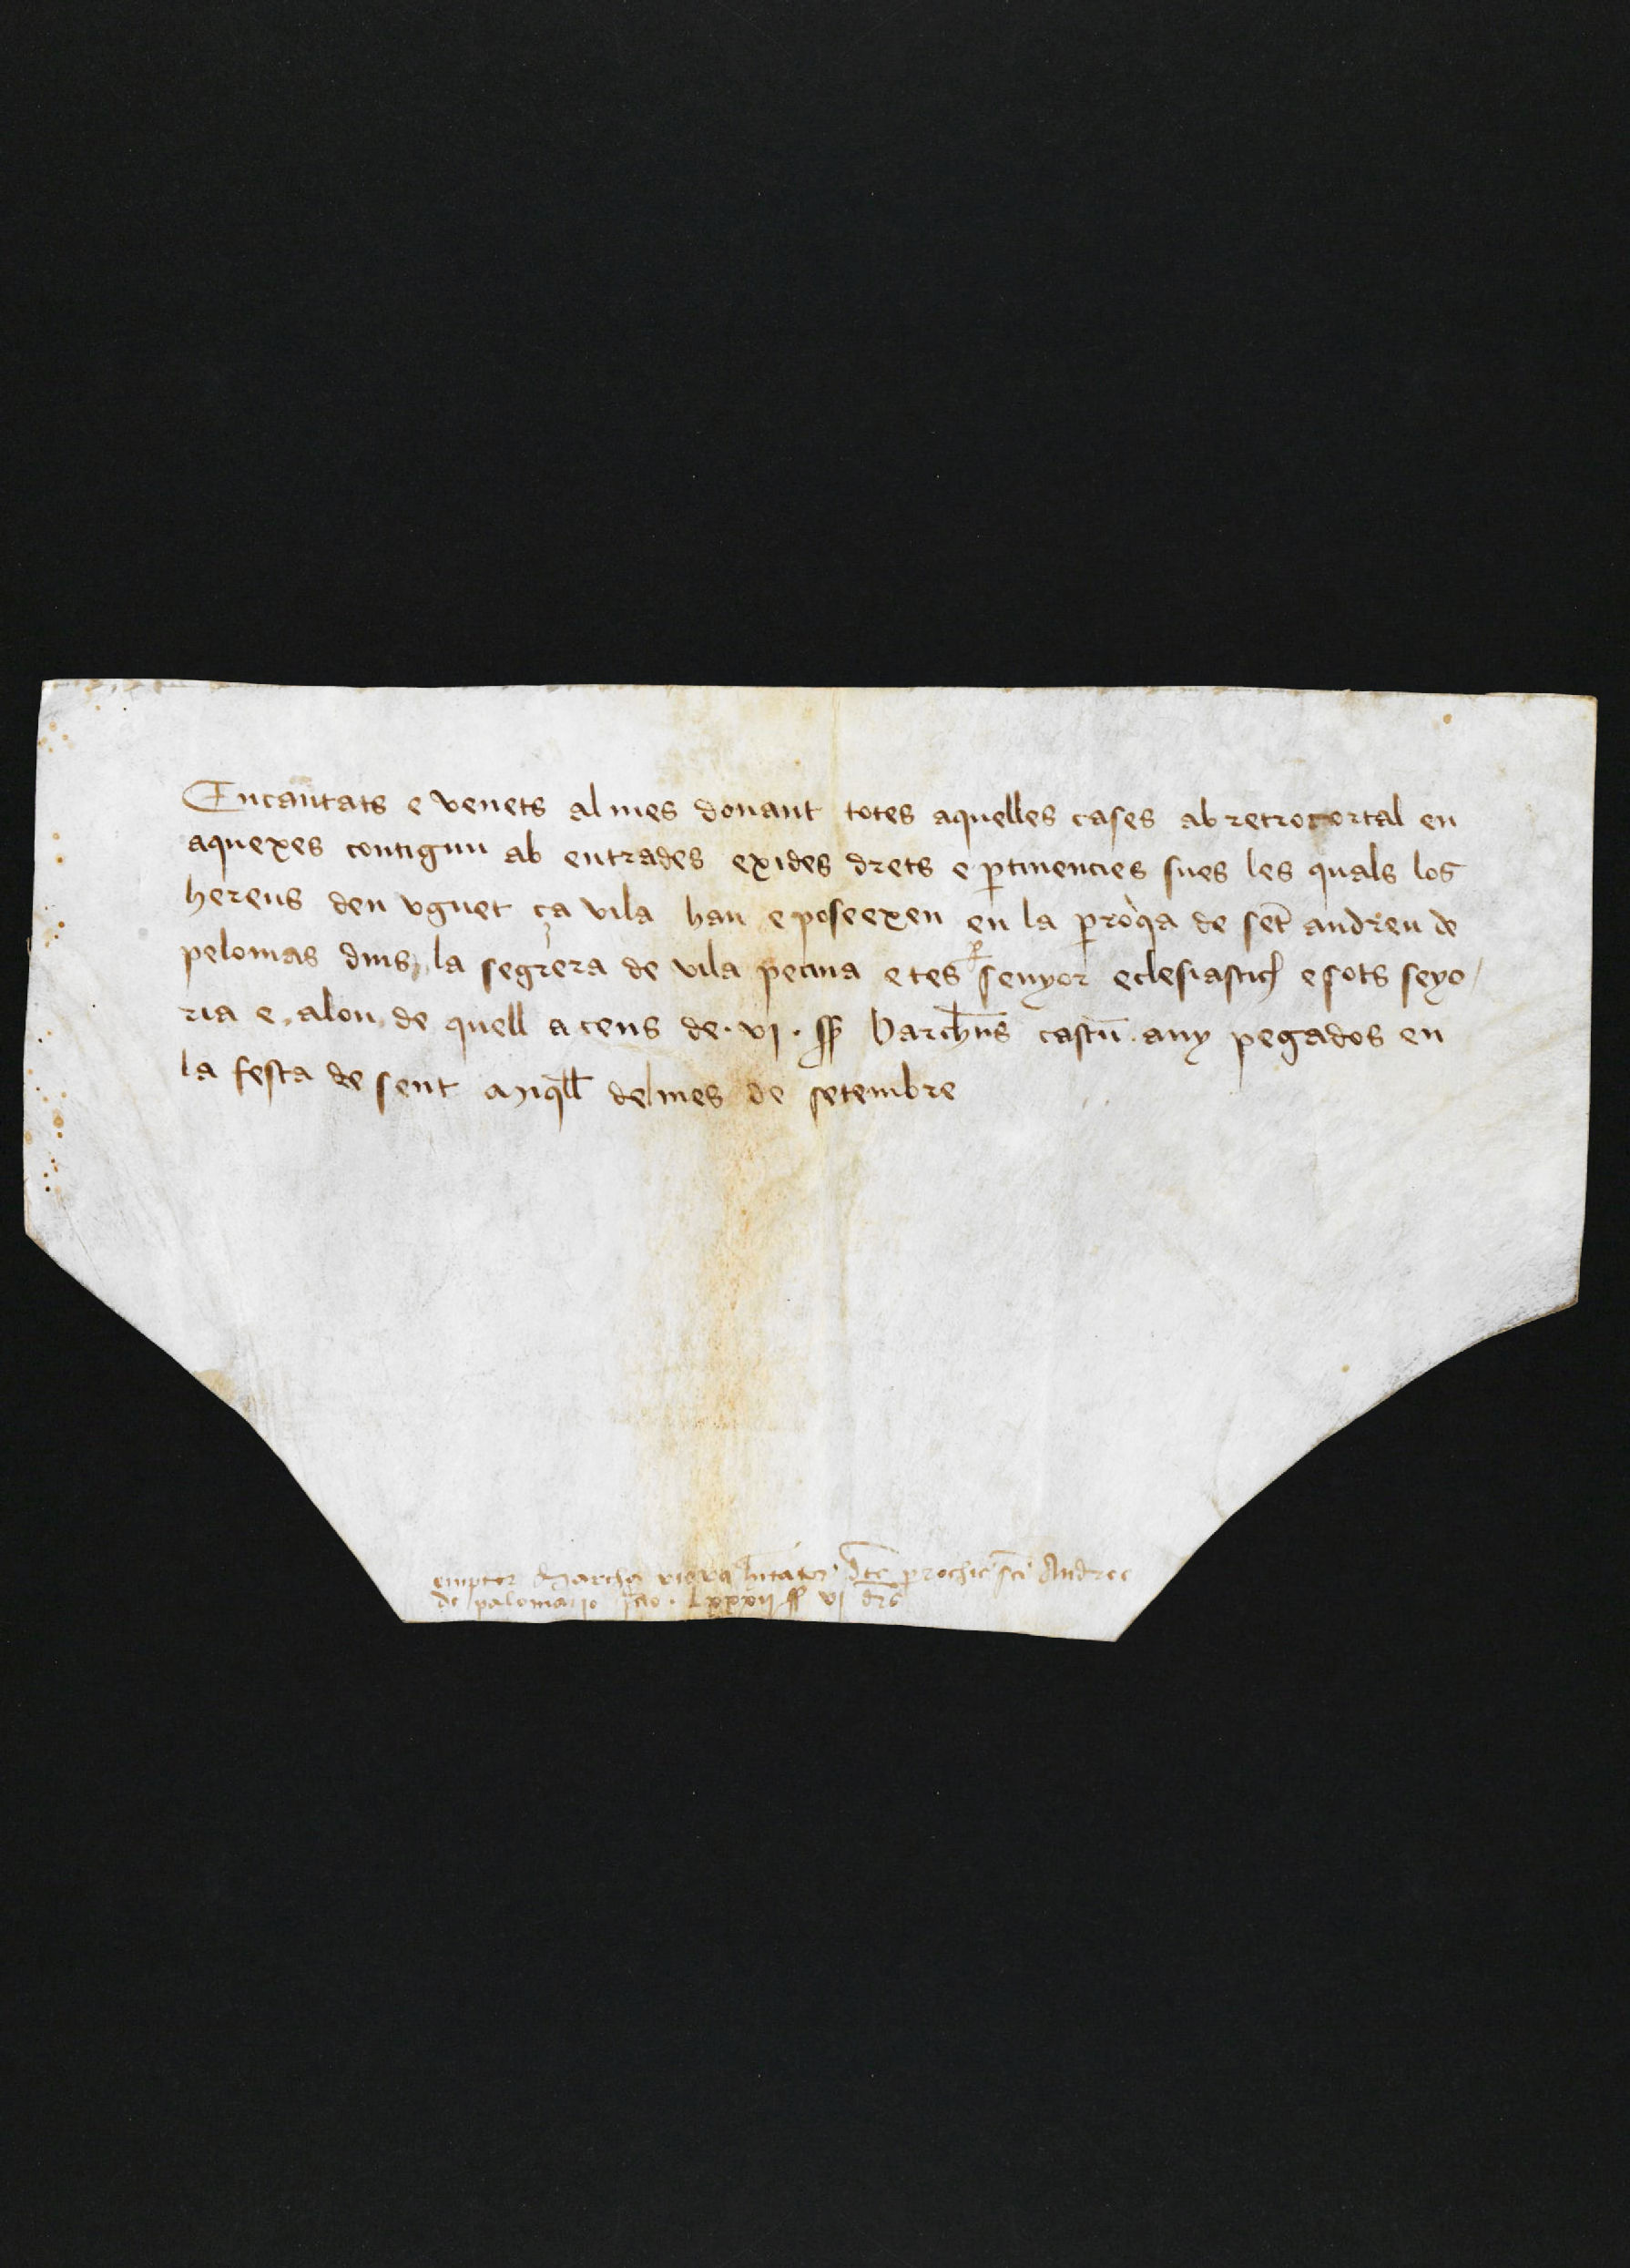 Encantats e venets al mes donant totes aquelles cases ab retrocortal en
aquexes contiguu ab entrades exides drets e ptinencies sues les quals los
hereus den vguet ça vila han e poseexen en la proqa de set andreu de
pelomas dins la segrera de vila pecina e tes p senyor eclesiastich e sots seyo
ria e alou de quell a cens de · vj · ss barchns cascu any pegados en
la festa de sent miqll del mes de setembre
emptor Marcha riera hitator dte prochie sci Andree
de palomario pcio · Lxxxij ss vj drs